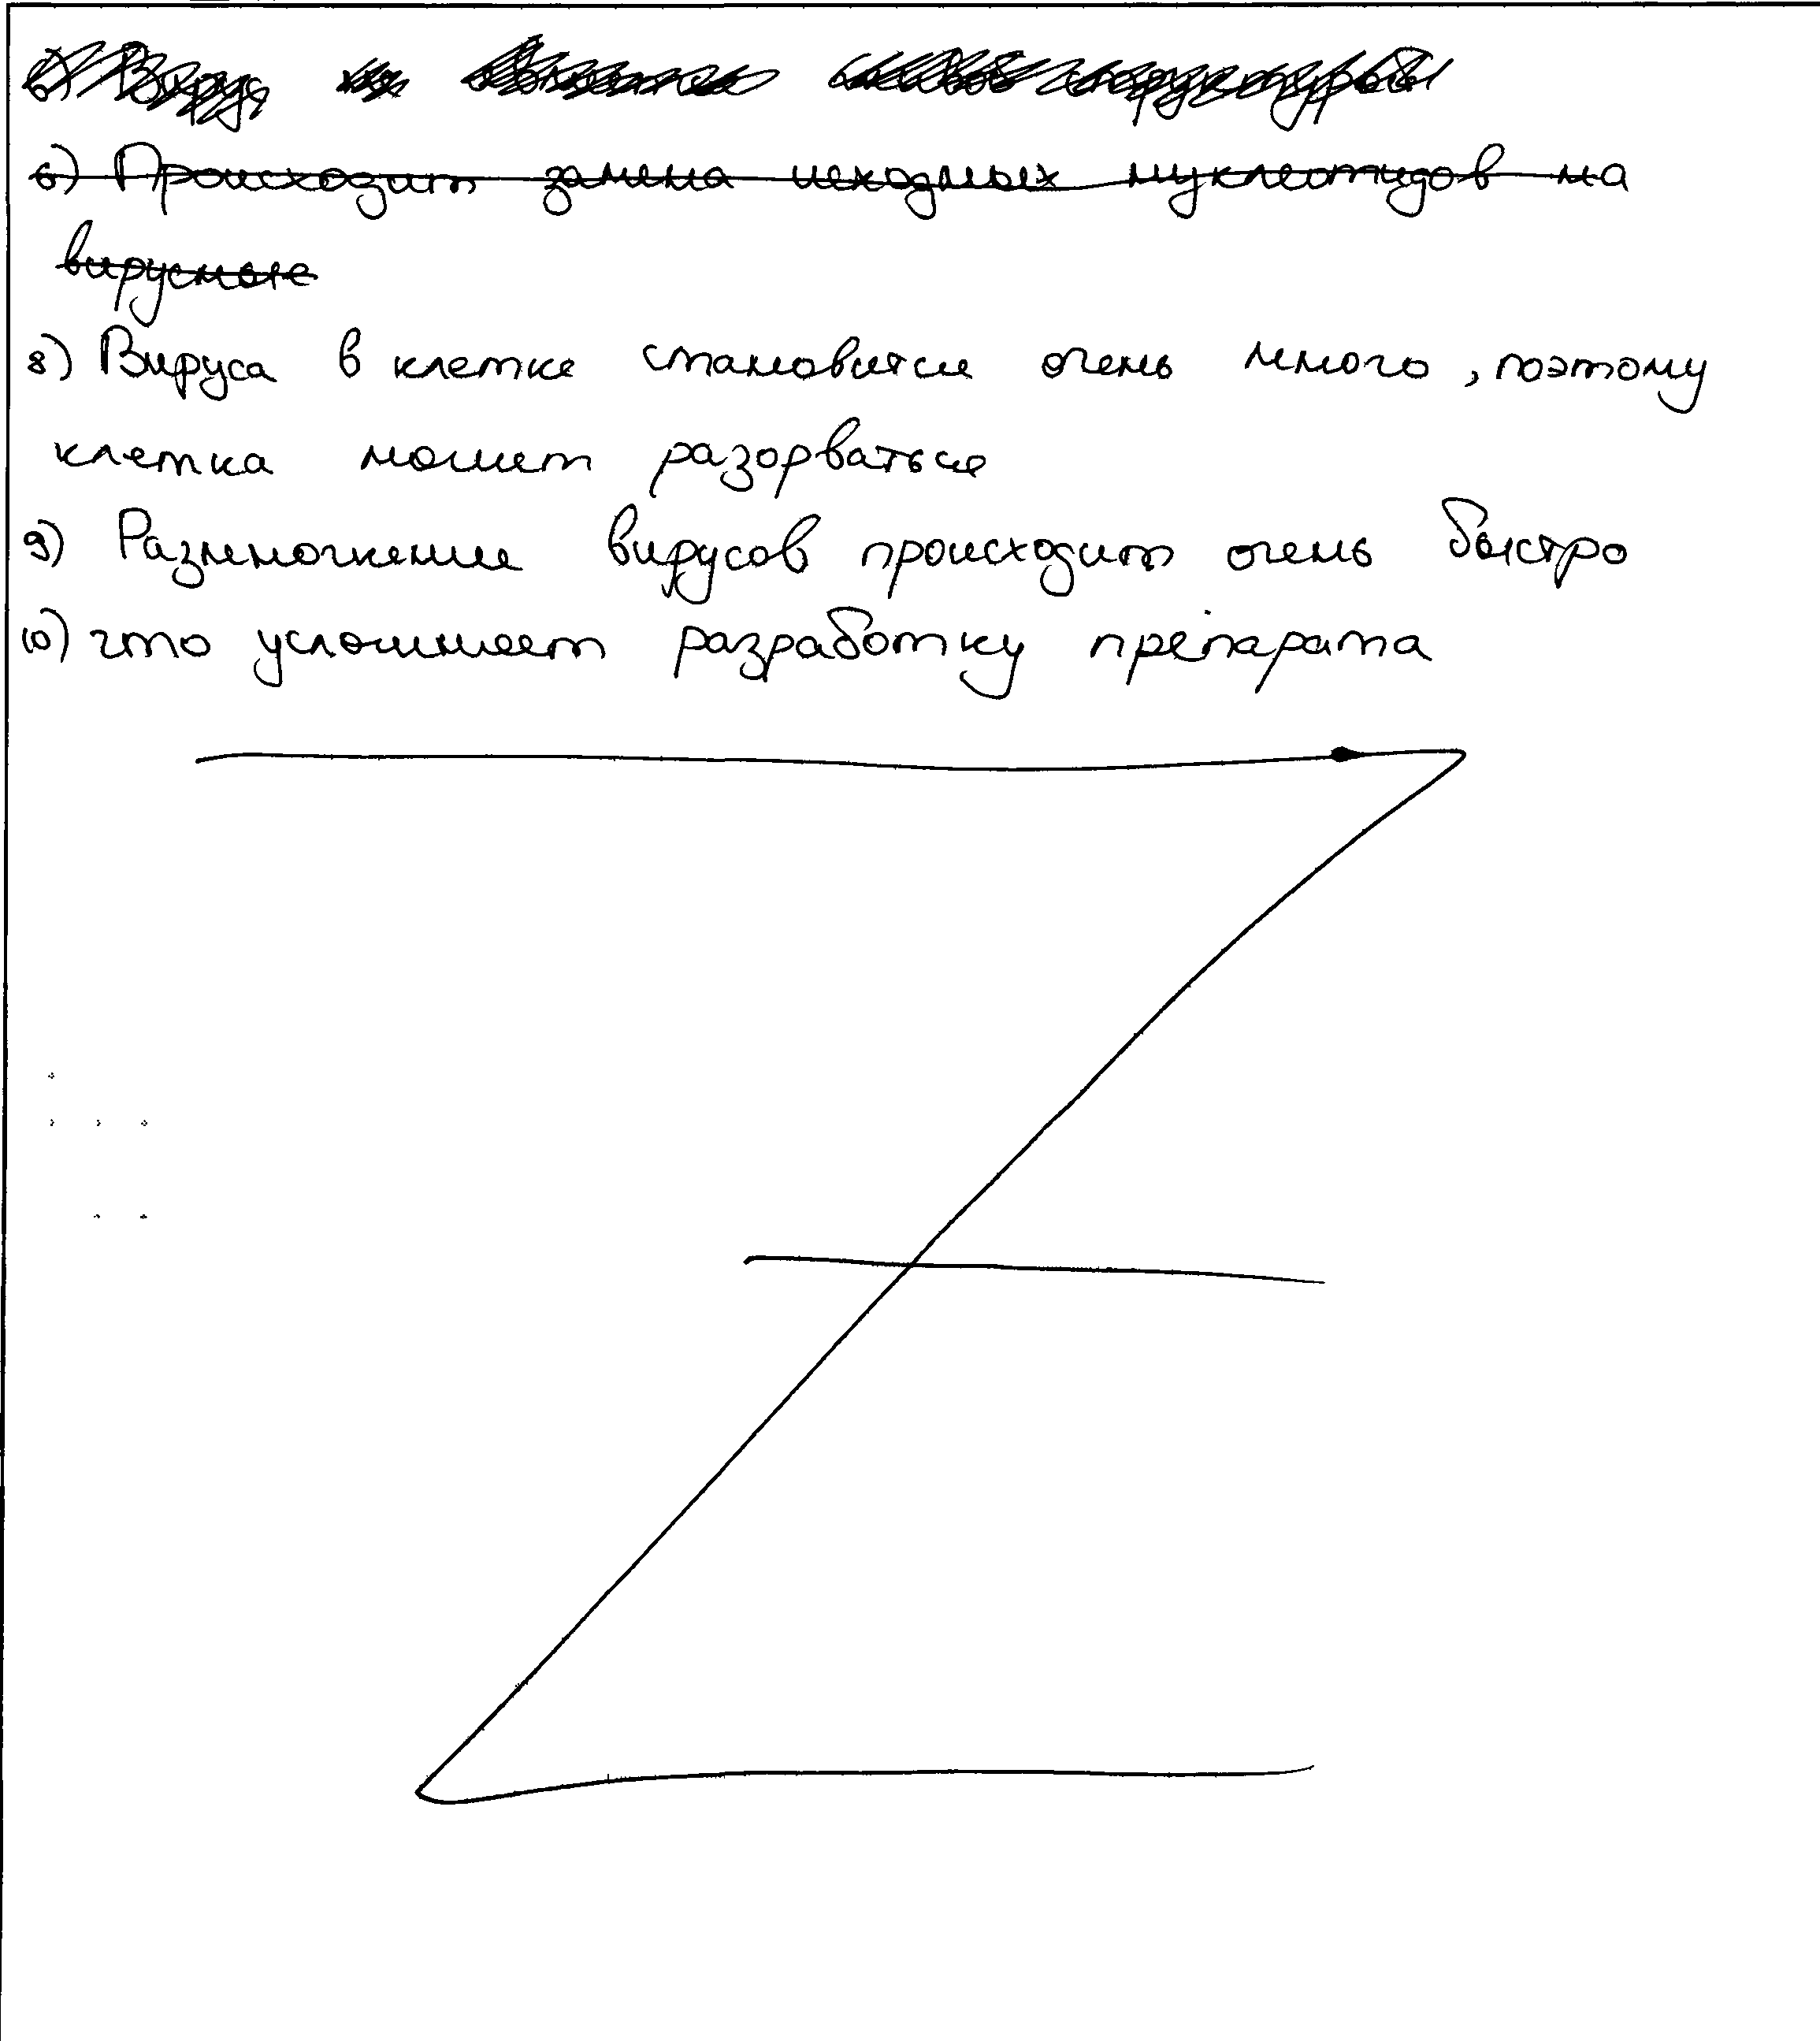 6) Вирус
6) Происходит замена исходных нуклеотидов на
вирусные
8) Вируса в клетке становится очень много, поэтому
клетка может разорваться
9) Размножение вирусов происходит очень быстро
10) что усложняет разработку препарата